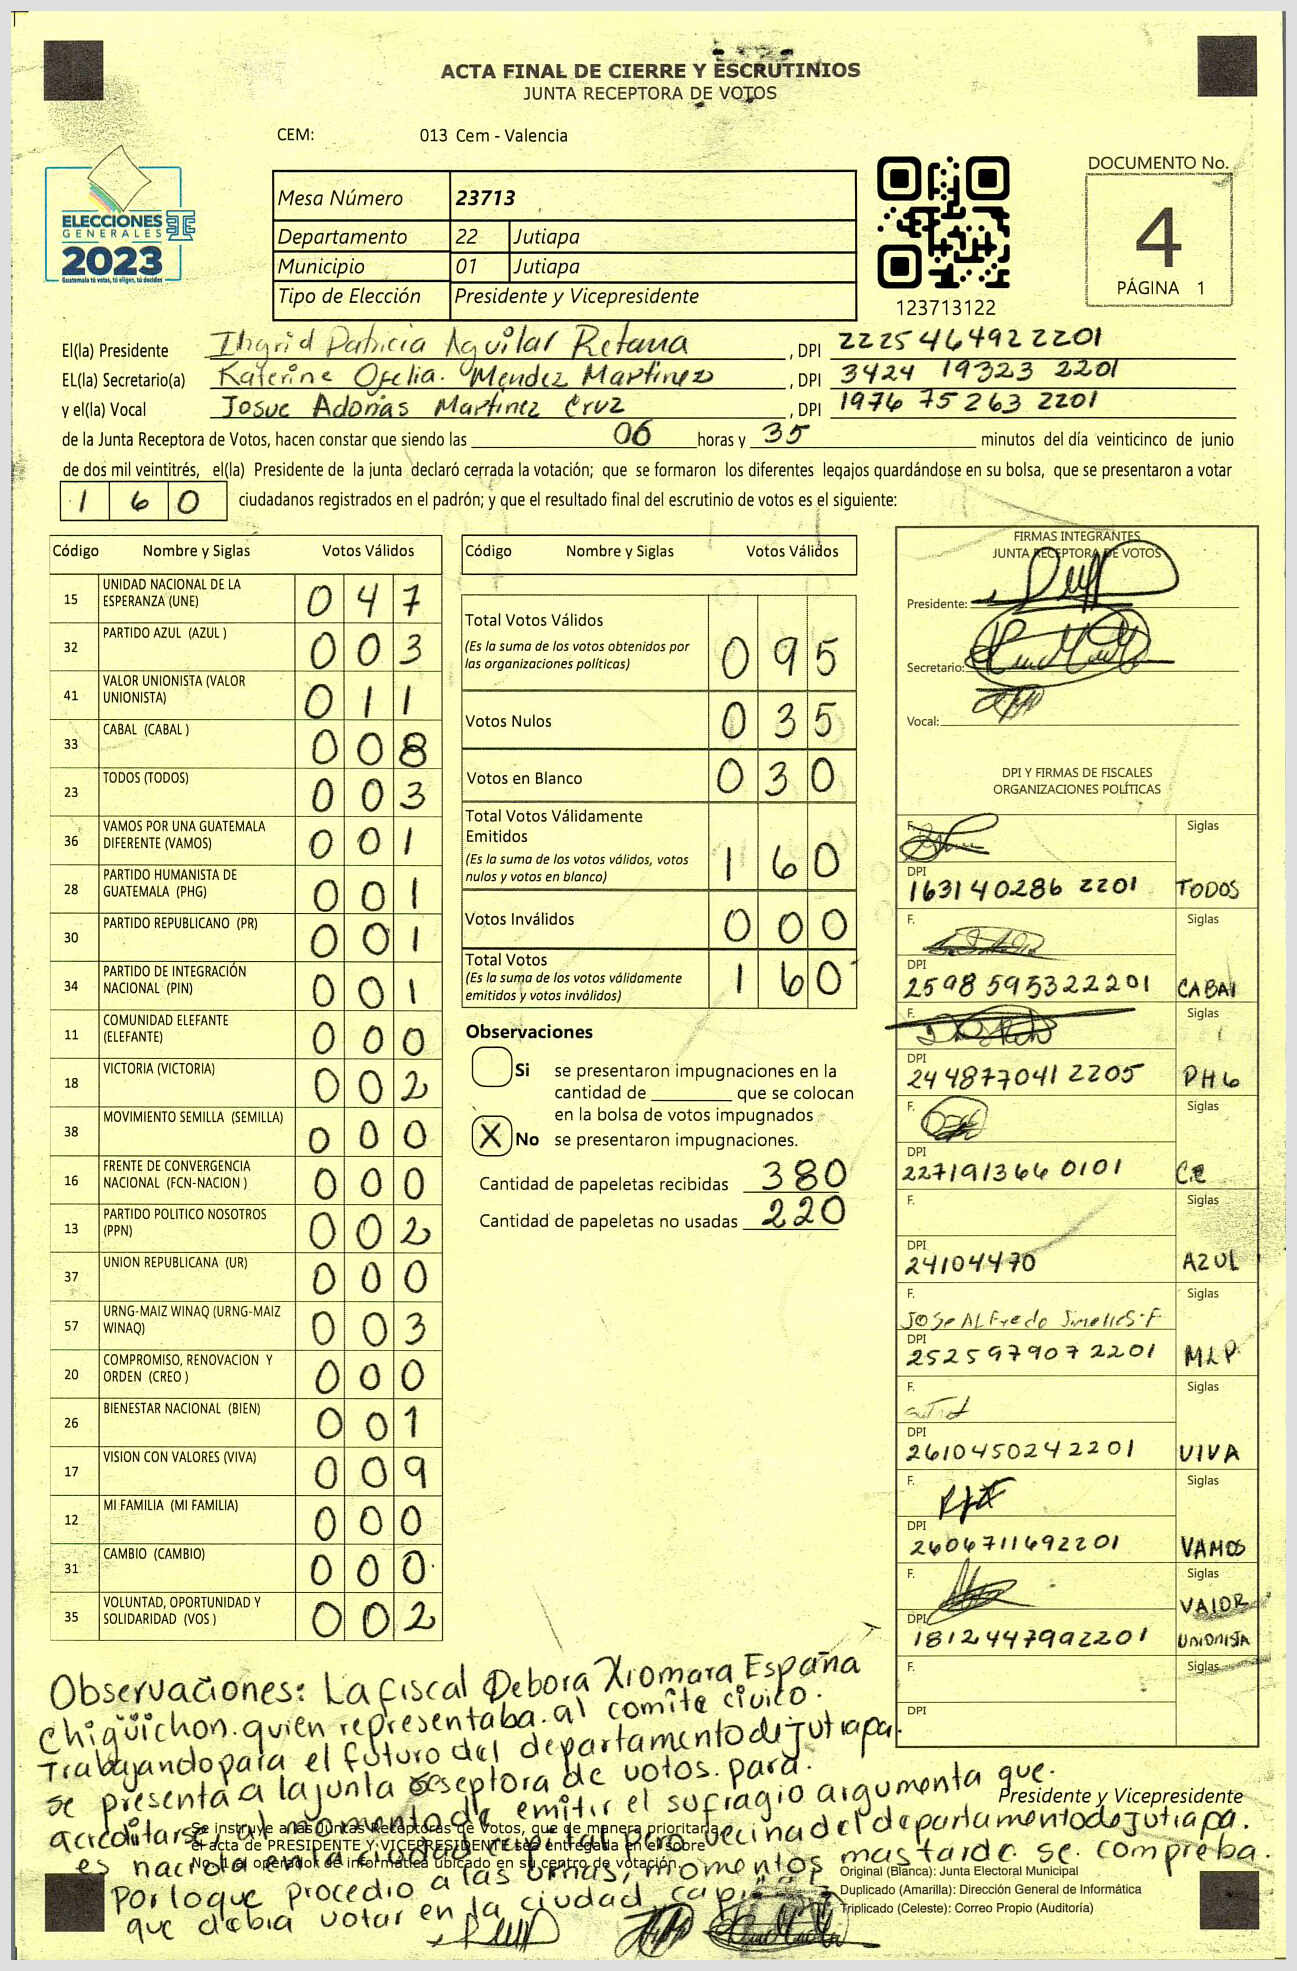 ACTA FINAL DE CIERRE Y ESCRUTINIOS
JUNTA RECEPTORA DE VOTOS
CEM: 013 Cem - Valencia
ELECCIONES
GENERALES
2023
Guatemala tú votas, tú eliges, tú decides
Mesa Número 23713
Departamento 22 Jutiapa
Municipio 01 Jutiapa
Tipo de Elección Presidente y Vicepresidente
123713122
DOCUMENTO No.
4
PÁGINA 1
El(la) Presidente Ingrid Patricia Aguilar Retana, DPI 2225464922201
EL(la) Secretario(a) Katerine Ofelia. Mendez Martinez, DPI 3424 19323 2201
y el(la) Vocal Josue Adonias Martinez Cruz, DPI 1976 75263 2201
de la Junta Receptora de Votos, hacen constar que siendo las 06 horas y 35 minutos del día veinticinco de junio
de dos mil veintitrés, el(la) Presidente de la junta declaró cerrada la votación; que se formaron los diferentes legajos quardándose en su bolsa, que se presentaron a votar
160 ciudadanos registrados en el padrón; y que el resultado final del escrutinio de votos es el siguiente:
Código Nombre y Siglas Votos Válidos
15 UNIDAD NACIONAL DE LA ESPERANZA (UNE) 047
32 PARTIDO AZUL (AZUL ) 003
41 VALOR UNIONISTA (VALOR UNIONISTA) 011
33 CABAL (CABAL ) 008
23 TODOS (TODOS) 003
36 VAMOS POR UNA GUATEMALA DIFERENTE (VAMOS) 001
28 PARTIDO HUMANISTA DE GUATEMALA (PHG) 001
30 PARTIDO REPUBLICANO (PR) 001
34 PARTIDO DE INTEGRACIÓN NACIONAL (PIN) 001
11 COMUNIDAD ELEFANTE (ELEFANTE) 000
18 VICTORIA (VICTORIA) 002
38 MOVIMIENTO SEMILLA (SEMILLA) 000
16 FRENTE DE CONVERGENCIA NACIONAL (FCN-NACION ) 000
13 PARTIDO POLITICO NOSOTROS (PPN) 002
37 UNION REPUBLICANA (UR) 000
57 URNG-MAIZ WINAQ (URNG-MAIZ WINAQ) 003
20 COMPROMISO, RENOVACION Y ORDEN (CREO ) 000
26 BIENESTAR NACIONAL (BIEN) 001
17 VISION CON VALORES (VIVA) 009
12 MI FAMILIA (MI FAMILIA) 000
31 CAMBIO (CAMBIO) 000
35 VOLUNTAD, OPORTUNIDAD Y SOLIDARIDAD (VOS ) 002
Código Nombre y Siglas Votos Válidos
Total Votos Válidos 095
(Es la suma de los votos obtenidos por
las organizaciones políticas)
Votos Nulos 035
Votos en Blanco 030
Total Votos Válidamente
Emitidos 160
(Es la suma de los votos válidos, votos
nulos y votos en blanco)
Votos Inválidos 000
Total Votos 160
(Es la suma de los votos válidamente
emitidos y votos inválidos)
Observaciones
Si se presentaron impugnaciones en la
cantidad de ________ que se colocan
en la bolsa de votos impugnados
X No se presentaron impugnaciones.
Cantidad de papeletas recibidas 380
Cantidad de papeletas no usadas 220
FIRMAS INTEGRANTES
JUNTA RECEPTORA DE VOTOS
Presidente:
Secretario:
Vocal:
DPI Y FIRMAS DE FISCALES
ORGANIZACIONES POLÍTICAS
F. Siglas
DPI 163140286 2201 TODOS
F. Siglas
DPI 2598 595322201 CABAL
F. Siglas
DPI 244877041 2205 PHG
F. Siglas
DPI 227191366 0101 C.C
F. Siglas
DPI 24104470 AZUL
F. JOSe ALFredo Siglas
DPI 2525979072201 MLP
F. Siglas
DPI 2610450242201 VIVA
F. Siglas
DPI 2606711692201 VAMOS
F. Siglas
DPI 1812447992201 VALOR UNIONISTA
F. Siglas
DPI
Observaciones: La fiscal Debora Xiomara España
Chigüichon. quien representaba. al comite civico.
Trabajando para el futuro del departamento de jutiapa.
se presenta a la junta reseptora de votos. para.
acreditarse, al momento de emitir el sufragio argumenta que.
es nacida en la ciudad capital pero vecina del departamento de Jutiapa.
Por lo que procedio a las urnas, momentos mas tarde. se. compreba.
que debia votar en la ciudad capital
Se instruye a las Juntas Receptoras de Votos, que de manera prioritaria,
el acta de PRESIDENTE Y VICEPRESIDENTE sea entregada en el Sobre
No. al operador de informática ubicado en su centro de votación.
Presidente y Vicepresidente
Original (Blanca): Junta Electoral Municipal
Duplicado (Amarilla): Dirección General de Informática
Triplicado (Celeste): Correo Propio (Auditoría)